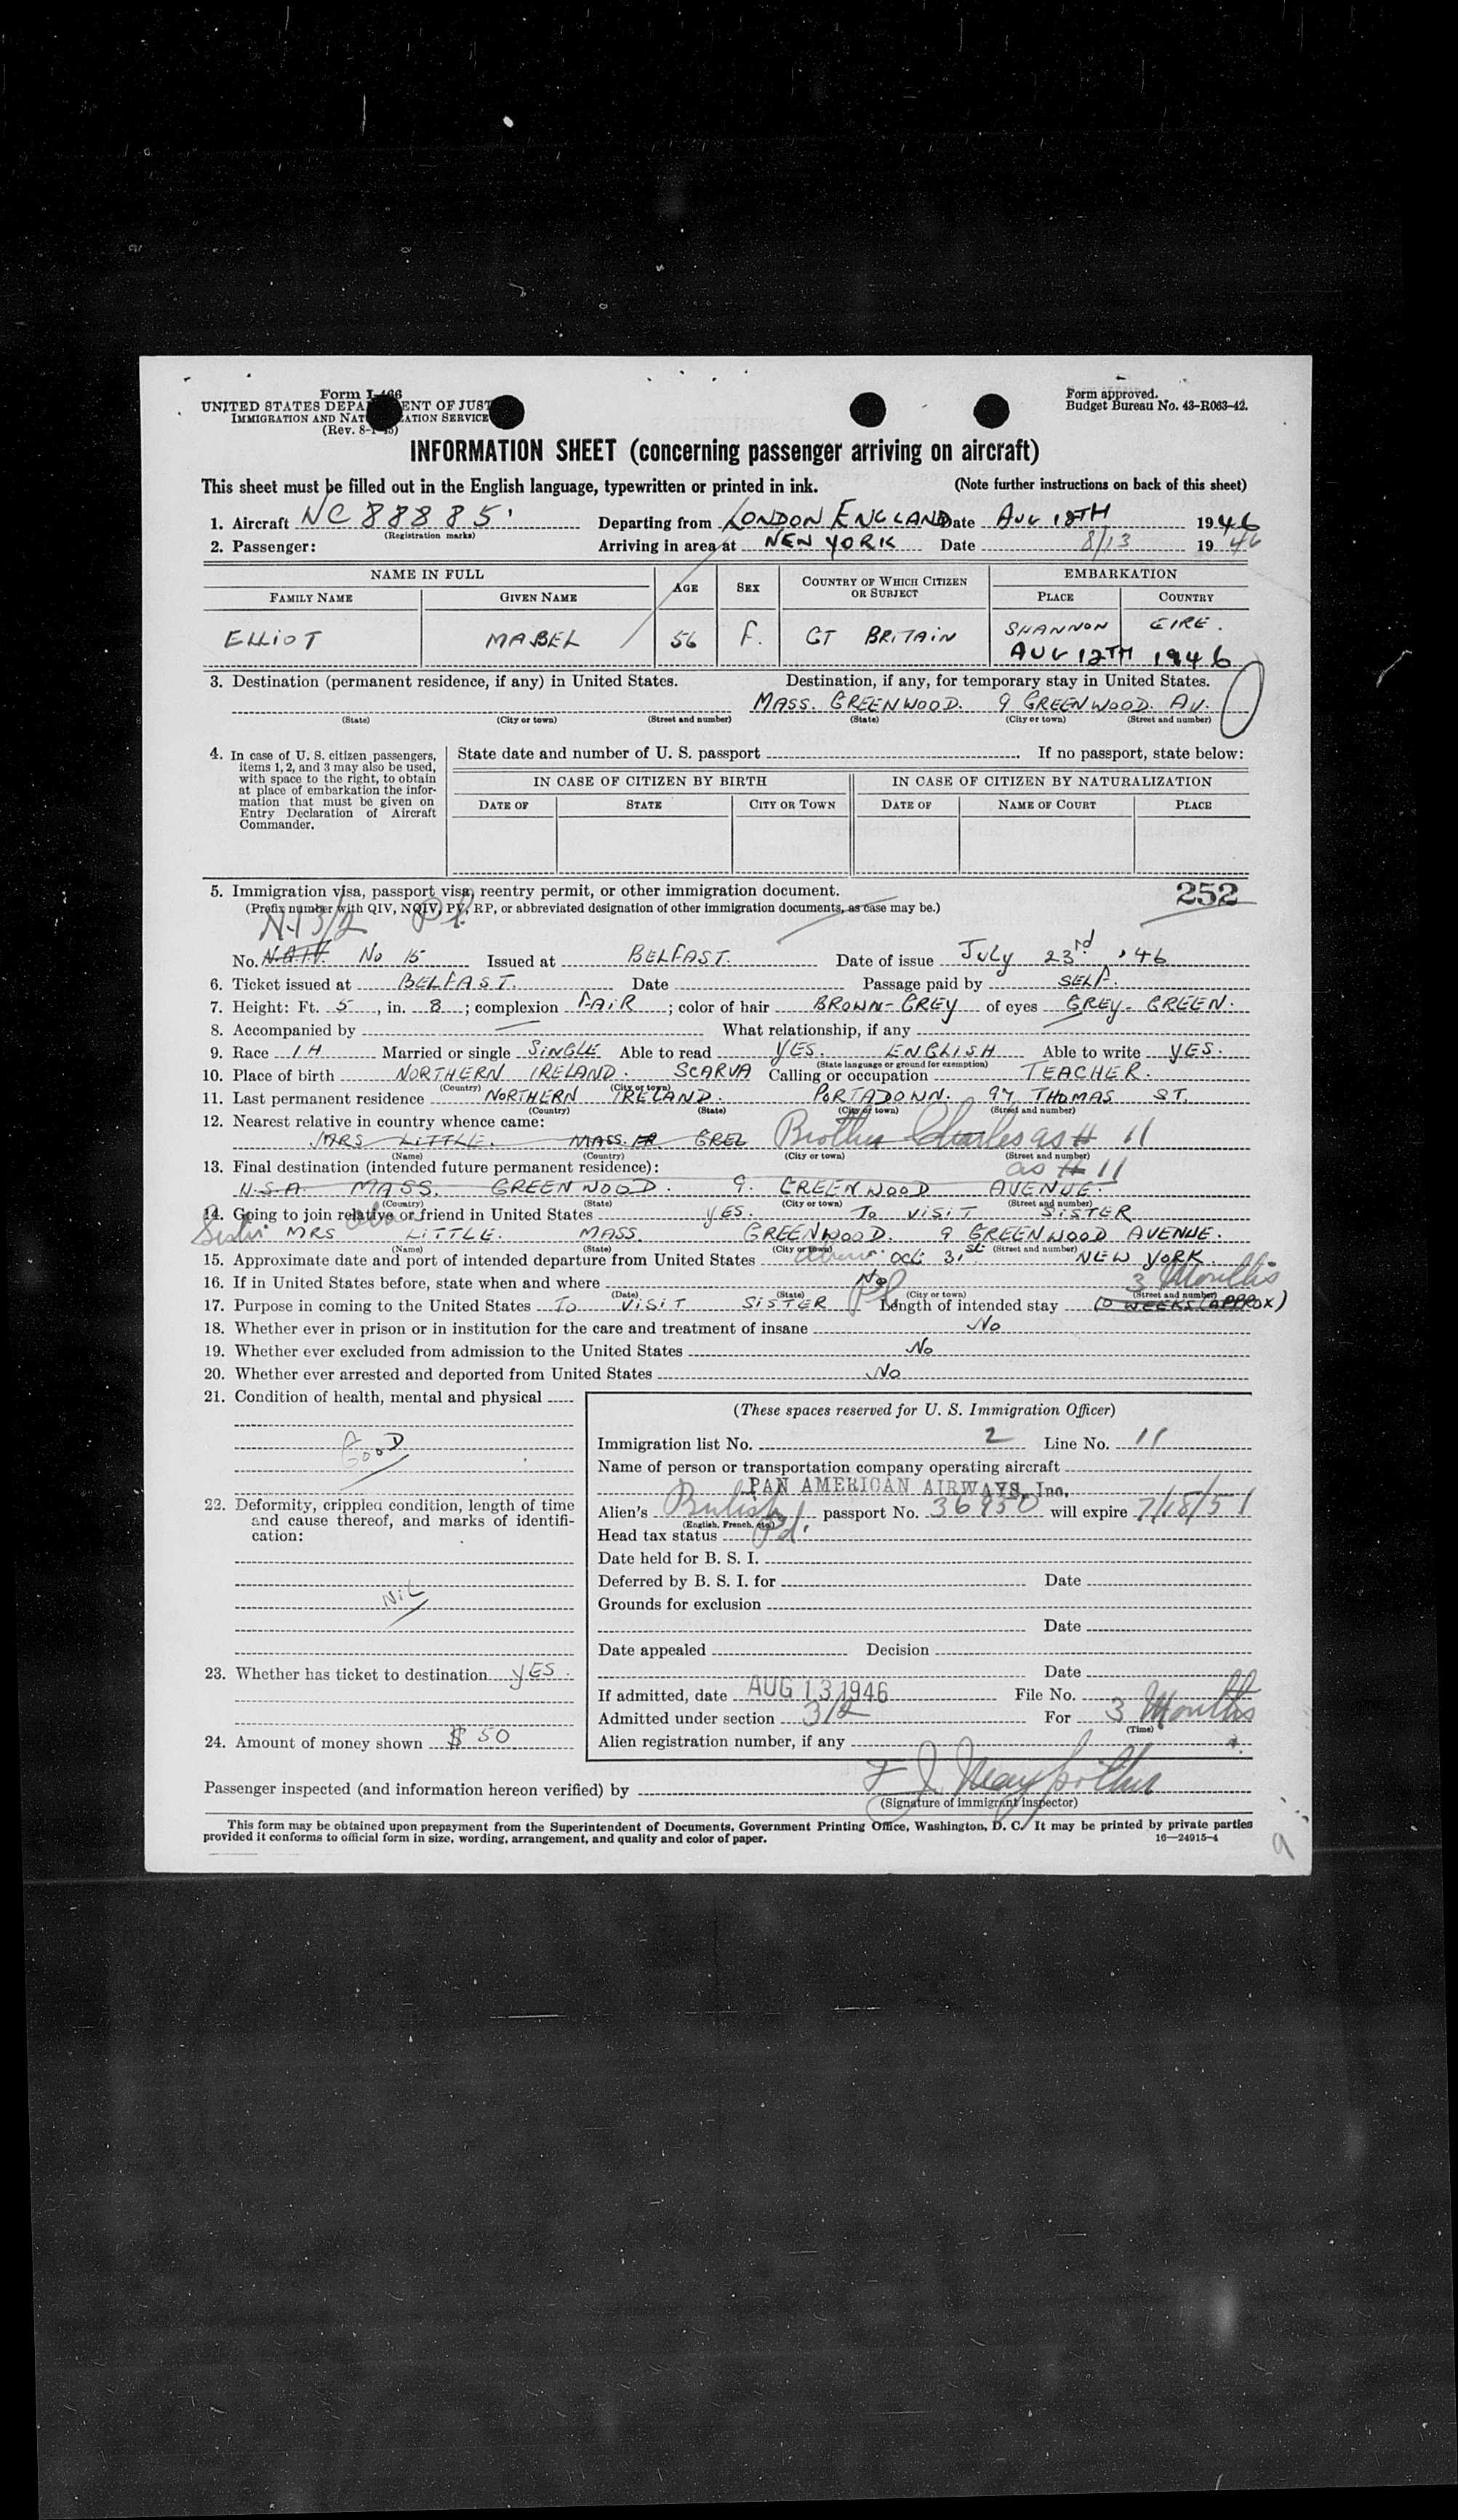 Form I-466
UNITED STATES DEPARTMENT OF JUSTICE
IMMIGRATION AND NATURALIZATION SERVICE
(Rev. 8-1-45)
Form approved.
Budget Bureau No. 43-R063-42.
INFORMATION SHEET (concerning passenger arriving on aircraft)
This sheet must be filled out in the English language, typewritten or printed in ink. (Note further instructions on back of this sheet)
1. Aircraft NC 88885 Departing from LONDON ENGLAND Date AUG 12TH 1946
(Registration marks)
2. Passenger: Arriving in area at NEW YORK Date 8/13 1946
NAME IN FULL AGE SEX COUNTRY OF WHICH CITIZEN OR SUBJECT EMBARKATION
FAMILY NAME GIVEN NAME PLACE COUNTRY
ELLIOT MABEL 56 F. GT BRITAIN SHANNON EIRE.
AUG 12TH 1946
3. Destination (permanent residence, if any) in United States. Destination, if any, for temporary stay in United States.
MASS. GREENWOOD. 9 GREENWOOD. AV.
(State) (City or town) (Street and number) (State) (City or town) (Street and number)
4. In case of U. S. citizen passengers, items 1, 2, and 3 may also be used, with space to the right, to obtain at place of embarkation the information that must be given on Entry Declaration of Aircraft Commander.
State date and number of U. S. passport If no passport, state below:
IN CASE OF CITIZEN BY BIRTH IN CASE OF CITIZEN BY NATURALIZATION
DATE OF STATE CITY OR TOWN DATE OF NAME OF COURT PLACE
5. Immigration visa, passport visa, reentry permit, or other immigration document. 252
(Prefix number with QIV, NQIV, PV, RP, or abbreviated designation of other immigration documents, as case may be.)
3/2
No. No 15 Issued at BELFAST. Date of issue JULY 23rd '46
6. Ticket issued at BELFAST. Date Passage paid by SELF.
7. Height: Ft. 5, in. 8; complexion FAIR; color of hair BROWN-GREY of eyes GREY-GREEN.
8. Accompanied by — What relationship, if any
9. Race IH Married or single SINGLE Able to read YES. ENGLISH Able to write YES.
(State language or ground for exemption)
10. Place of birth NORTHERN IRELAND. SCARVA Calling or occupation TEACHER.
(Country) (City or town)
11. Last permanent residence NORTHERN IRELAND. PORTADOWN. 97 THOMAS ST.
(Country) (State) (City or town) (Street and number)
12. Nearest relative in country whence came:
MRS LITTLE. MASS. GREE Brother Charles as # 11
(Name) (Country) (City or town) (Street and number)
13. Final destination (intended future permanent residence): as # 11
U.S.A. MASS. GREENWOOD. 9. GREENWOOD AVENUE.
(Country) (State) (City or town) (Street and number)
14. Going to join relative or friend in United States YES. TO VISIT SISTER
Sister MRS LITTLE. MASS. GREENWOOD. 9 GREENWOOD AVENUE.
(Name) (State) (City or town) (Street and number)
15. Approximate date and port of intended departure from United States OCT 31st NEW YORK.
16. If in United States before, state when and where No 3 Months
(Date) (State) (City or town) (Street and number)
17. Purpose in coming to the United States TO VISIT SISTER Length of intended stay 10 WEEKS (APPROX)
18. Whether ever in prison or in institution for the care and treatment of insane No
19. Whether ever excluded from admission to the United States No
20. Whether ever arrested and deported from United States No
21. Condition of health, mental and physical
GOOD
22. Deformity, crippled condition, length of time and cause thereof, and marks of identification:
NIL
23. Whether has ticket to destination YES.
24. Amount of money shown $ 50
(These spaces reserved for U. S. Immigration Officer)
Immigration list No. 2 Line No. 11
Name of person or transportation company operating aircraft
PAN AMERICAN AIRWAYS, Inc.
Alien's British passport No. 36950 will expire 7/18/51
(English, French, etc.)
Head tax status Pd.
Date held for B. S. I.
Deferred by B. S. I. for Date
Grounds for exclusion
Date
Date appealed Decision
Date
If admitted, date AUG 13 1946 File No.
Admitted under section 3/2 For 3 Months
(Time)
Alien registration number, if any
Passenger inspected (and information hereon verified) by
(Signature of immigrant inspector)
This form may be obtained upon prepayment from the Superintendent of Documents, Government Printing Office, Washington, D. C. It may be printed by private parties
provided it conforms to official form in size, wording, arrangement, and quality and color of paper. 16—24915-4
9